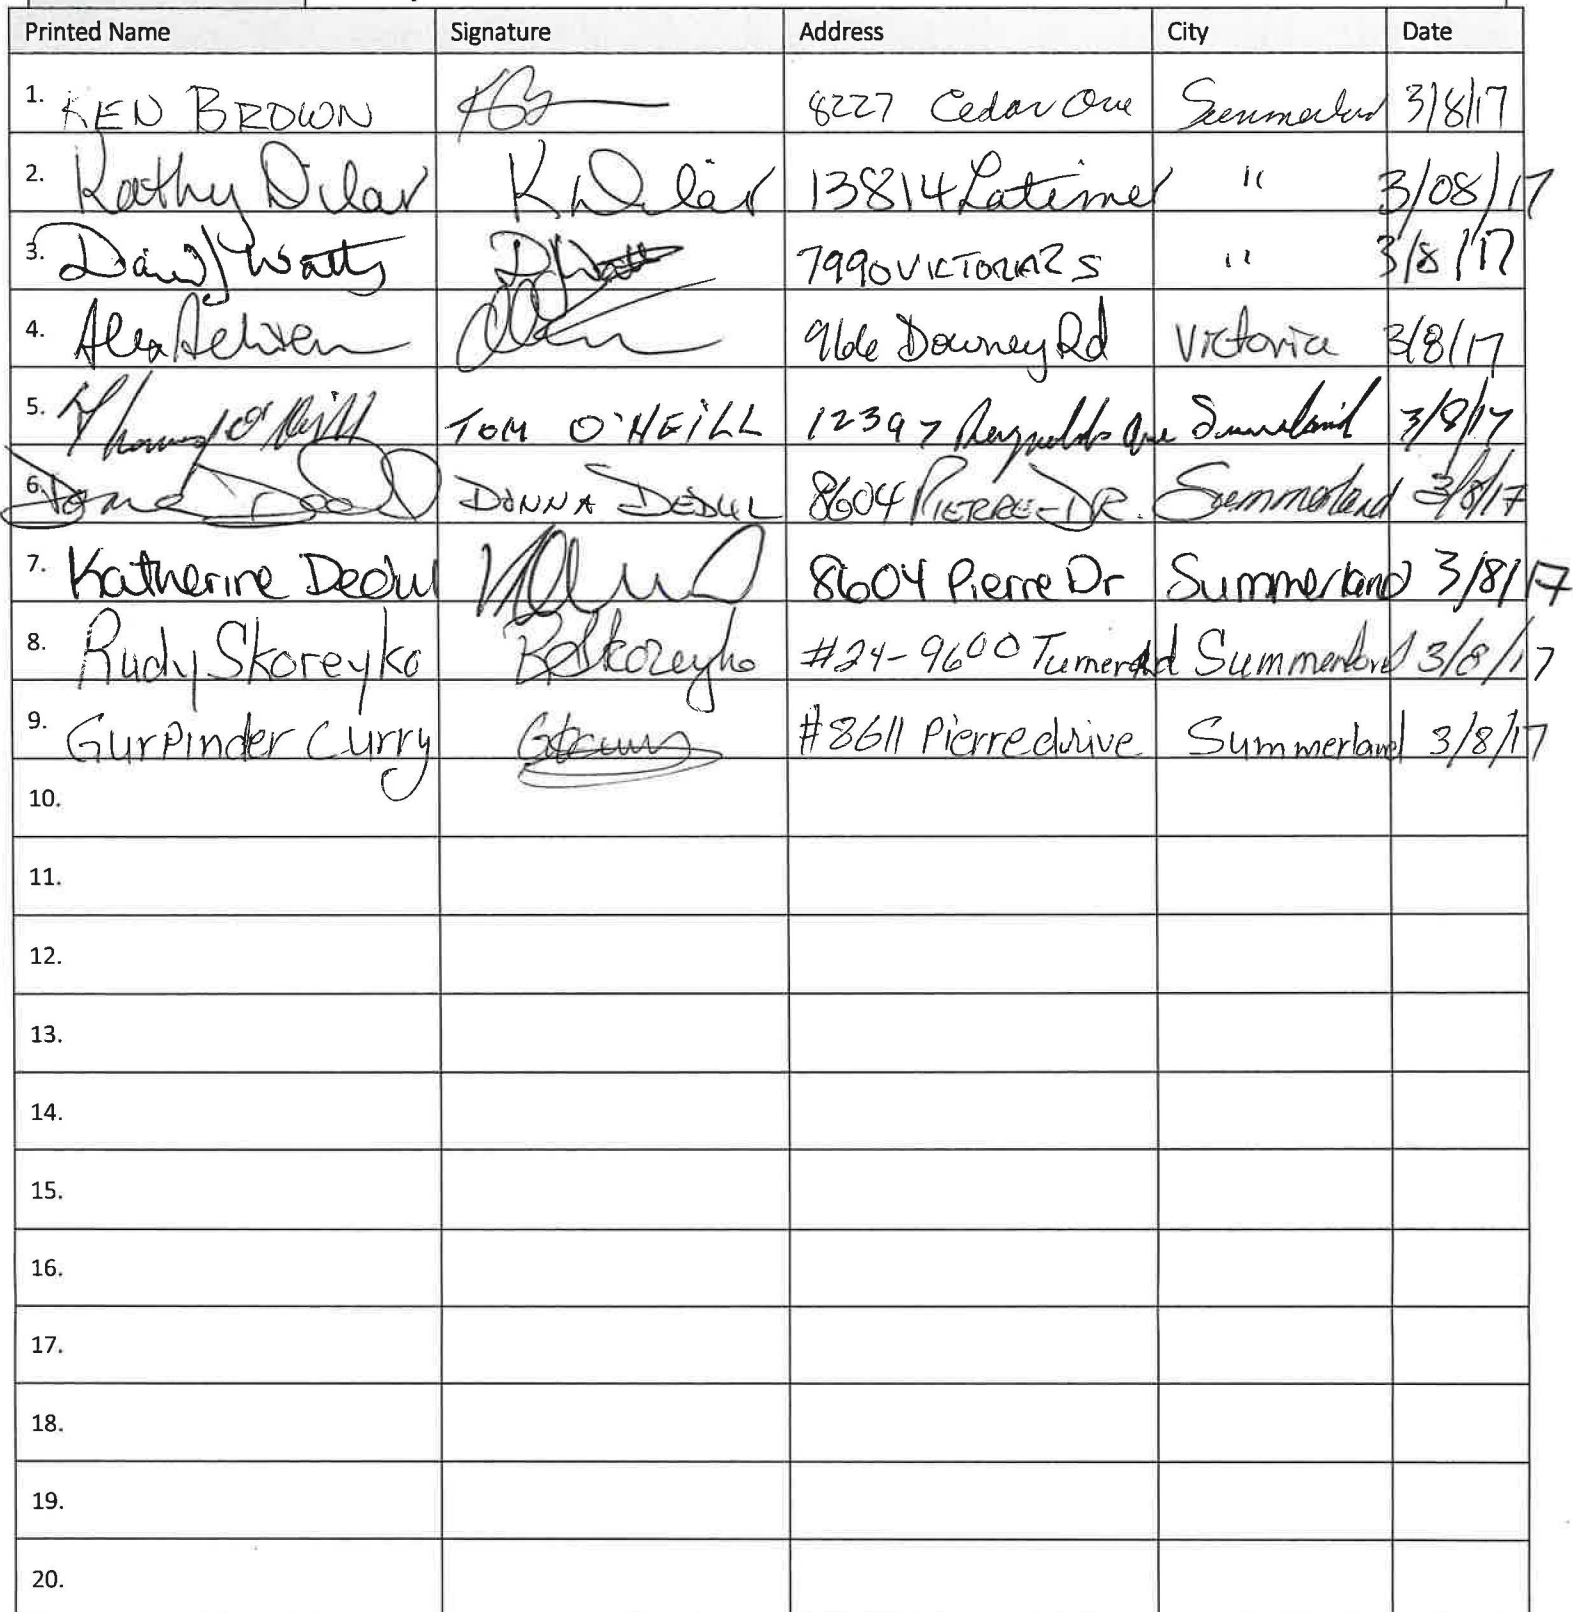 Printed Name Signature Address City Date
1. KEN BROWN 8227 Cedar Ave Summerland 3/8/17
2. Kathy Dilar K Dilar 13814 Latimer " 3/08/17
3. David J Watts D J Watts 7990 VICTORIA RD S " 3/8/17
4. Alex 966 Downey Rd Victoria 3/8/17
5. Thomas O'Neill TOM O'NEILL 12397 Reynolds Ave Summerland 3/8/17
6. Donna Dedul DONNA DEDUL 8604 PIERRE DR. Summerland 3/8/17
7. Katherine Dedul 8604 Pierre Dr Summerland 3/8/17
8. Rudy Skoreyko R Skoreyko #24-9600 Turner Rd Summerland 3/8/17
9. Gurpinder Curry #8611 Pierre drive Summerland 3/8/17
10.
11.
12.
13.
14.
15.
16.
17.
18.
19.
20.